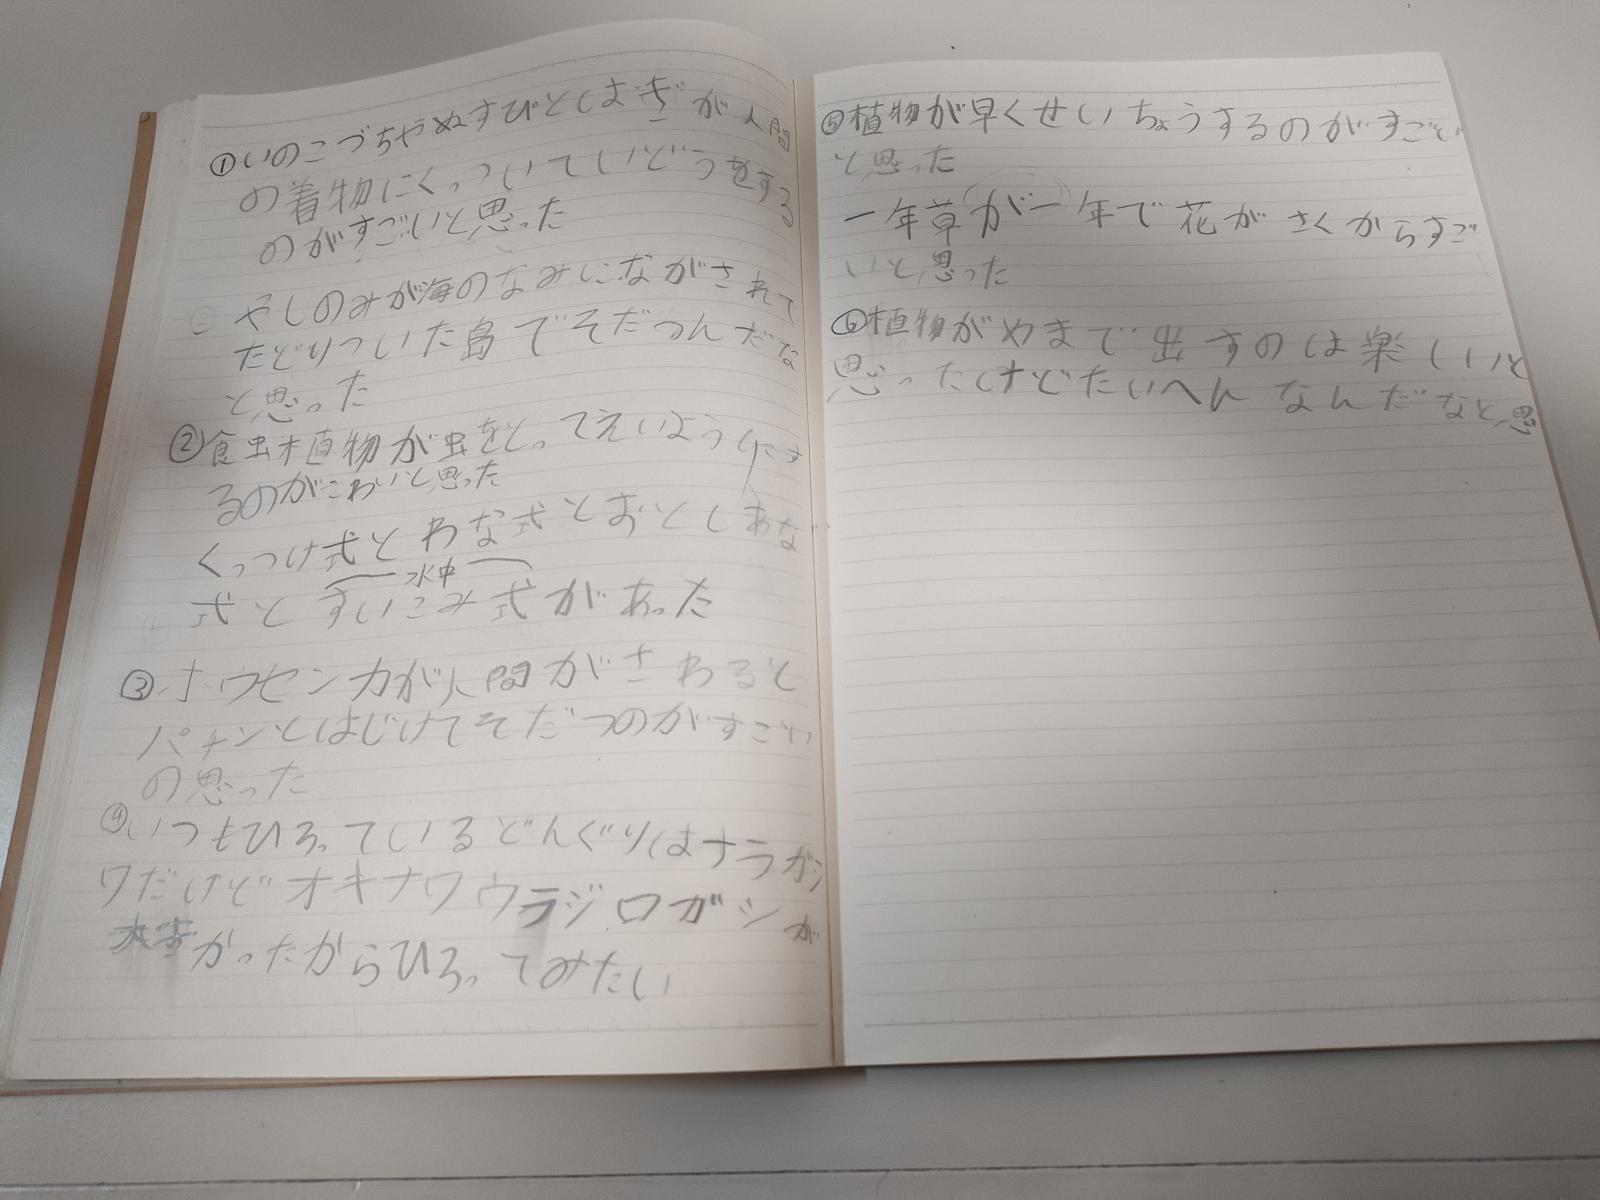 ①いのこづちやぬすびとはぎが人間
の着物にくっついていどうをする
のがすごいと思った
やしのみが海のなみにながされて
たどりついた島でそだつんだな
と思った
②食虫植物が虫をとってえいように
するのがこわいと思った
くっつけ式とわな式とおとしあな
水中
式とすいこみ式があった
③ホウセンカが人間がさわると
パチンとはじけてそだつのがすごい
の思った
④いつもひろっているどんぐりはナラガシ
ワだけどオキナワウラジロガシが
大きかったからひろってみたい
⑤植物が早くせいちょうするのがすごい
と思った
一年草が一年で花がさくからすご
いと思った
⑥植物がめまで出すのは楽しいと
思ったけどたいへんなんだなと思